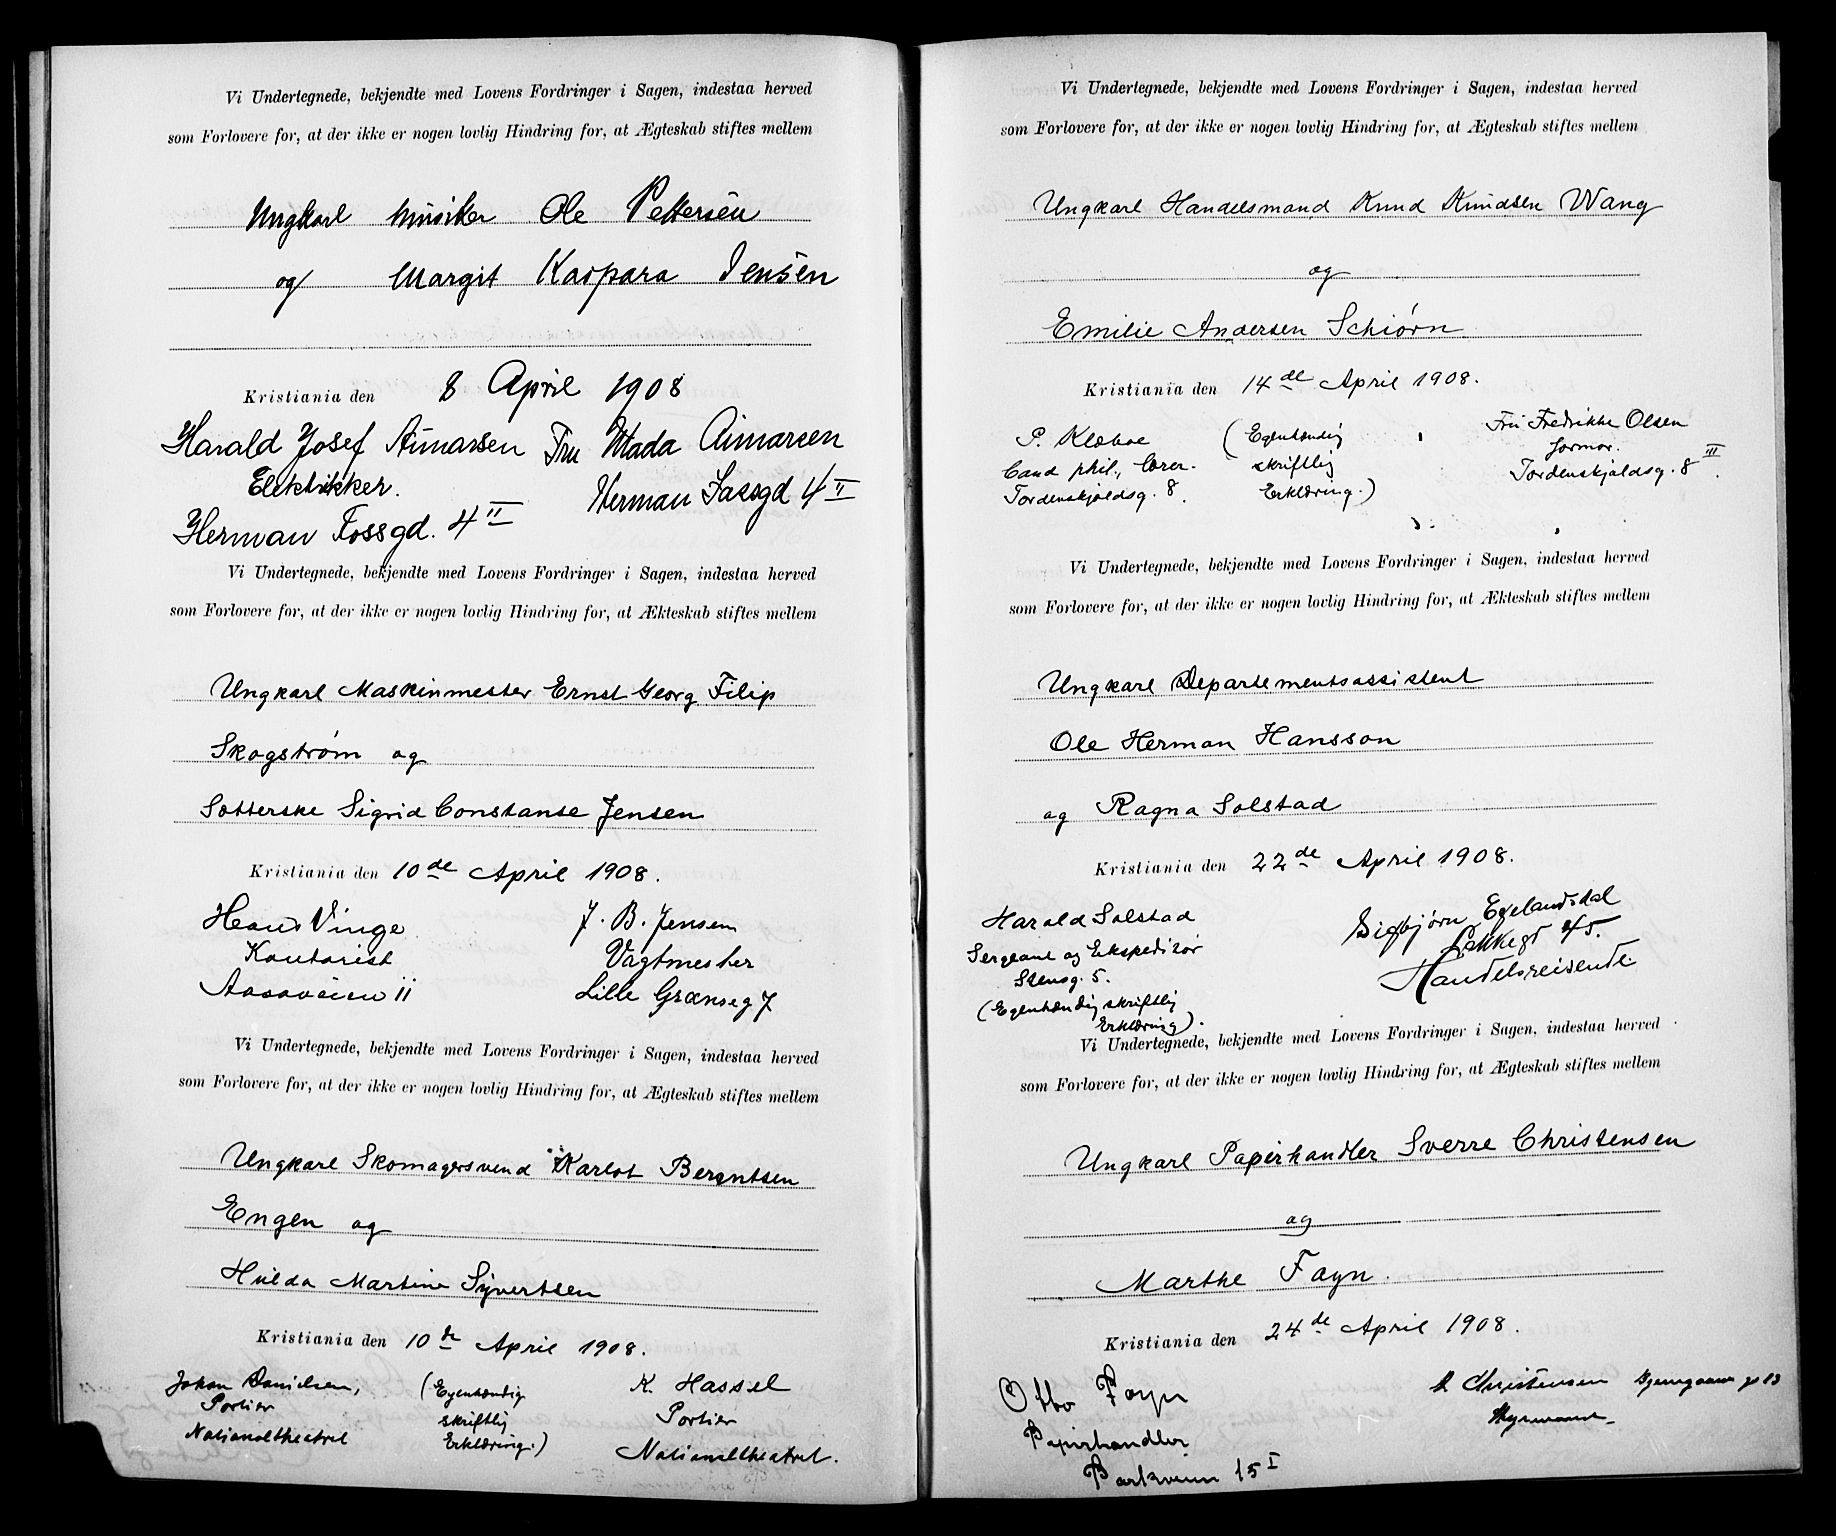 Vi Undertegnede, bekjendte med Lovens Fordringer i Sagen, indestaa herved
som Forlovere for, at der ikke er nogen lovlig Hindring for, at Ægteskab stiftes mellem
Ungkarl Musiker Ole Pettersen
og Margit Kaspara Jensen
Kristiania den 8 April 1908
Harald Josef Aimarsen Fru Mada Aimarsen
Elektriker. Herman Fossgd 4 II
Herman Fossgd. 4 II
Vi Undertegnede, bekjendte med Lovens Fordringer i Sagen, indestaa herved
som Forlovere for, at der ikke er nogen lovlig Hindring for, at Ækteskab stiftes mellem
Ungkarl Maskinmester Ernst Georg Filip
Skogstrøm og
Sætterske Sigrid Constanse Jensen
Kristiania den 10de April 1908.
Hans Vinge J. B. Jensen
Kontorist Vagtmester
Aasaveien 11 Lille Grænseg 7
Vi Undertegnede, bekjendte med Lovens Fordringer i Sagen, indestaa herved
som Forlovere for, at der ikke er nogen lovlig Hindring for, at Ægteskab stiftes mellem
Ungkarl Skomagersvend Karlot Berentsen
Engen og
Hulda Martine Syvertsen
Kristiania den 10de April 1908.
Johan Danielsen, (Egenhændig K. Hassel
Portier skriftlig Portier
Nationaltheatret Erklæring.) Nationaltheatret.
Vi Undertegnede, bekjendte med Lovens Fordringer i Sagen, indestaa herved
som Forlovere for, at der ikke er nogen lovlig Hindring for, at Ægteskab stiftes mellem
Ungkarl Handelsmand Knud Knudsen Wang
og
Emilie Andersen Schiørn
Kristiania den 14de April 1908.
P. Klæboe (Egenhændig Fru Fredrikke Olsen
Cand phil., lærer. skriftlig Jormor.
Tordenskjoldsg. 8. Erklæring.) Tordenskjoldsg. 8 III.
Vi Undertegnede, bekjendte med Lovens Fordringer i Sagen, indestaa herved
som Forlovere for, at der ikke er nogen lovlig Hindring for, at Ækteskab stiftes mellem
Ungkarl Departementsassistent
Ole Herman Hansson
og Ragna Solstad
Kristiania den 22de April 1908.
Harald Solstad Sigbjørn Egelandsdal
Sergeant og Ekspeditør Løkkegt 45.
Stensg. 5. Handelsreisende.
(Egenhændig skriftlig
Erklæring).
Vi Undertegnede, bekjendte med Lovens Fordringer i Sagen, indestaa herved
som Forlovere for, at der ikke er nogen lovlig Hindring for, at Ægteskab stiftes mellem
Ungkarl Papirhandler Sverre Christensen
og
Marthe Fayn.
Kristiania den 24de April 1908.
Otto Fayn Christensen
Papirhandler Styrmand
Parkveien 15 I